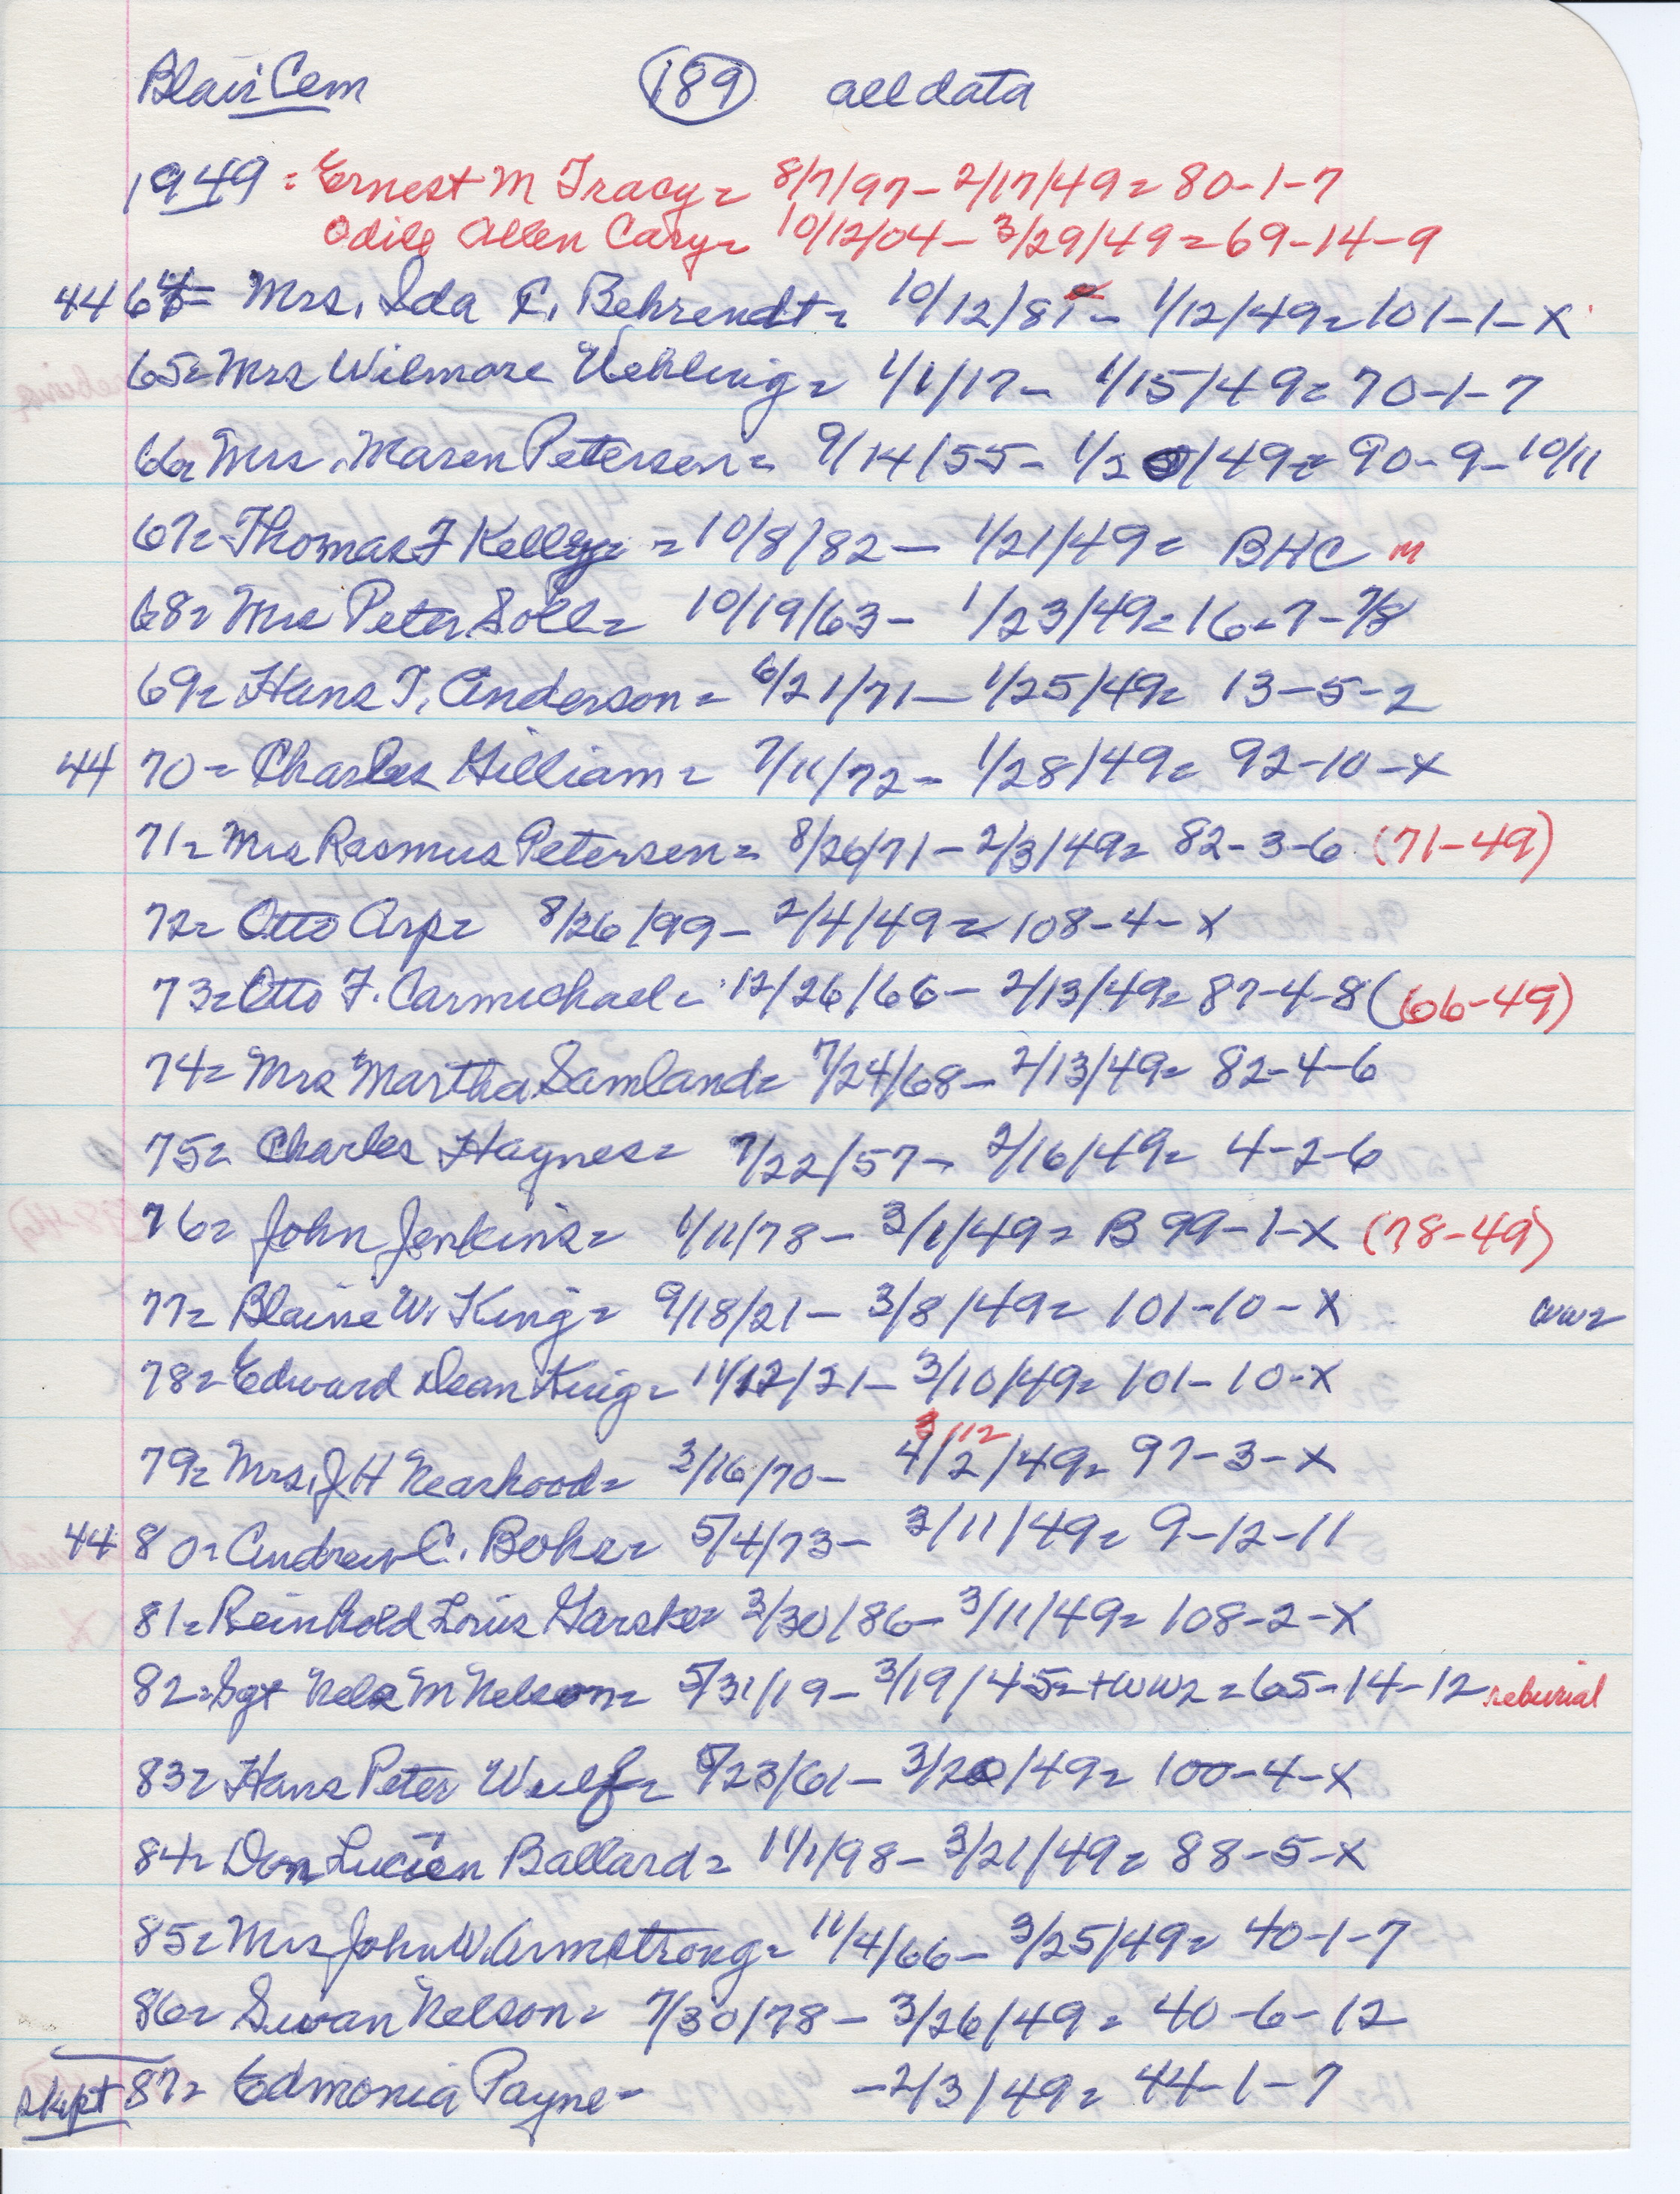 Blair Cem (189) all data
1949 = Ernest M Tracy = 8/7/97 - 2/17/49 = 80-1-7
Odile Allen Cary = 10/12/04 - 3/29/49 = 69-14-9
44 64 = Mrs. Ida C. Behrendt = 10/12/87 - 1/12/49 = 101-1-X
65 = Mrs Wilmore Uehling = 1/1/17 - 1/15/49 = 70-1-7
66 = Mrs. Maren Petersen = 9/14/55 - 1/20/49 = 90-9-10/11
67 = Thomas F Kelly = 10/8/82 - 1/21/49 = BHC M
68 = Mrs Peter Soll = 10/19/63 - 1/23/49 = 16-7-7/8
69 = Hans T. Anderson = 6/21/71 - 1/25/49 = 13-5-2
44 70 = Charles Gilliam = 7/11/72 - 1/28/49 = 92-10-X
71 = Mrs Rasmus Petersen = 8/26/71 - 2/3/49 = 82-3-6 (71-49)
72 = Otto Arp = 8/26/99 - 2/4/49 = 108-4-X
73 = Otto F. Carmichael = 12/26/66 - 2/13/49 = 87-4-8 (66-49)
74 = Mrs Martha Samland = 7/24/68 - 2/13/49 = 82-4-6
75 = Charles Haynes = 7/22/57 - 2/16/49 = 4-2-6
76 = John Jenkins = 1/11/78 - 3/1/49 = B 99-1-X (78-49)
77 = Blaine W. King = 9/18/21 - 3/8/49 = 101-10-X WW2
78 = Edward Dean King = 11/12/21 - 3/10/49 = 101-10-X
3/12
79 = Mrs. J H Nearhood = 3/16/70 - 4/2/49 = 97-3-X
44 80 = Andrew C. Boks = 5/4/73 - 3/11/49 = 9-12-11
81 = Reinhold Louis Garske = 3/30/86 - 3/11/49 = 108-2-X
82 = Sgt Nels M Nelson = 5/31/19 - 3/19/45 = + WW2 = 65-14-12 reburial
83 = Hans Peter Wulf = 5/23/61 - 3/20/49 = 100-4-X
84 = Don Lucien Ballard = 11/1/98 - 3/21/49 = 88-5-X
85 = Mrs John W. Armstrong = 11/4/66 - 3/25/49 = 40-1-7
86 = Swan Nelson = 7/30/78 - 3/26/49 = 40-6-12
skipt 87 = Edmonia Payne = - 2/3/49 = 44-1-7